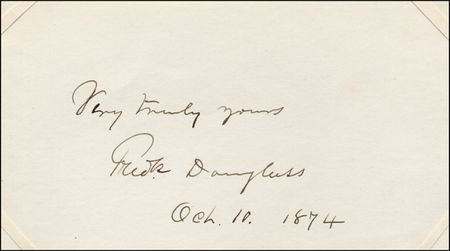 Very truly yours
Fredk Douglass
Oct. 10. 1874